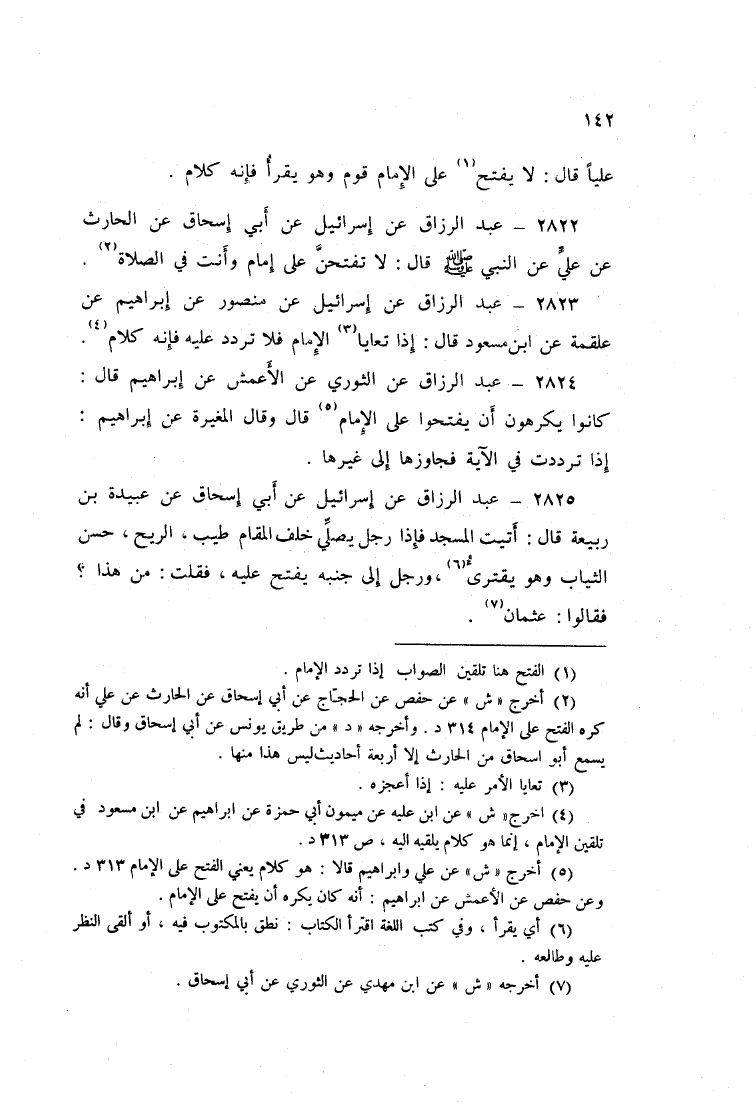 ١٤٢
علياً قال : لا يفتح(١) على الإمام قوم وهو يقرأُ فإنه كلام .
٢٨٢٢ – عبد الرزاق عن إسرائيل عن أبي إسحاق عن الحارث
عن عليٍّ عن النبي ﷺ قال : لا تفتحنَّ على إمام وأنت في الصلاة(٢) .
٢٨٢٣ – عبد الرزاق عن إسرائيل عن منصور عن إبراهيم عن
علقمة عن ابن مسعود قال : إذا تعايا(٣) الإمام فلا تردد عليه فإنه كلام(٤) .
٢٨٢٤ – عبد الرزاق عن الثوري عن الأعمش عن إبراهيم قال :
كانوا يكرهون أن يفتحوا على الإمام(٥) قال وقال المغيرة عن إبراهيم :
إذا ترددت في الآية فجاوزها إلى غيرها .
٢٨٢٥ – عبد الرزاق عن إسرائيل عن أبي إسحاق عن عبيدة بن
ربيعة قال : أتيت المسجد فإذا رجل يصلِّي خلف المقام طيب ، الريح ، حسن
الثياب وهو يقترىءُ(٦) ، ورجل إلى جنبه يفتح عليه ، فقلت : من هذا ؟
فقالوا : عثمان(٧) .
(١) الفتح هنا تلقين الصواب إذا تردد الإمام .
(٢) أخرج « ش » عن حفص عن الحجّاج عن أبي إسحاق عن الحارث عن علي أنه
كره الفتح على الإمام ٣١٤ د . وأخرجه « د » من طريق يونس عن أبي إسحاق وقال : لم
يسمع أبو اسحاق من الحارث إلا أربعة أحاديث ليس هذا منها .
(٣) تعايا الأمر عليه : إذا أعجزه .
(٤) اخرج « ش » عن ابن عليه عن ميمون أبي حمزة عن ابراهيم عن ابن مسعود في
تلقين الإمام ، إنما هو كلام يلقيه اليه ، ص ٣١٣ د .
(٥) أخرج « ش » عن علي وابراهيم قالا : هو كلام يعني الفتح على الإمام ٣١٣ د .
وعن حفص عن الأعمش عن ابراهيم : أنه كان يكره أن يفتح على الإمام .
(٦) أي يقرأ ، وفي كتب اللغة اقترأ الكتاب : نطق بالمكتوب فيه ، أو ألقى النظر
عليه وطالعه .
(٧) أخرجه « ش » عن ابن مهدي عن الثوري عن أبي إسحاق .